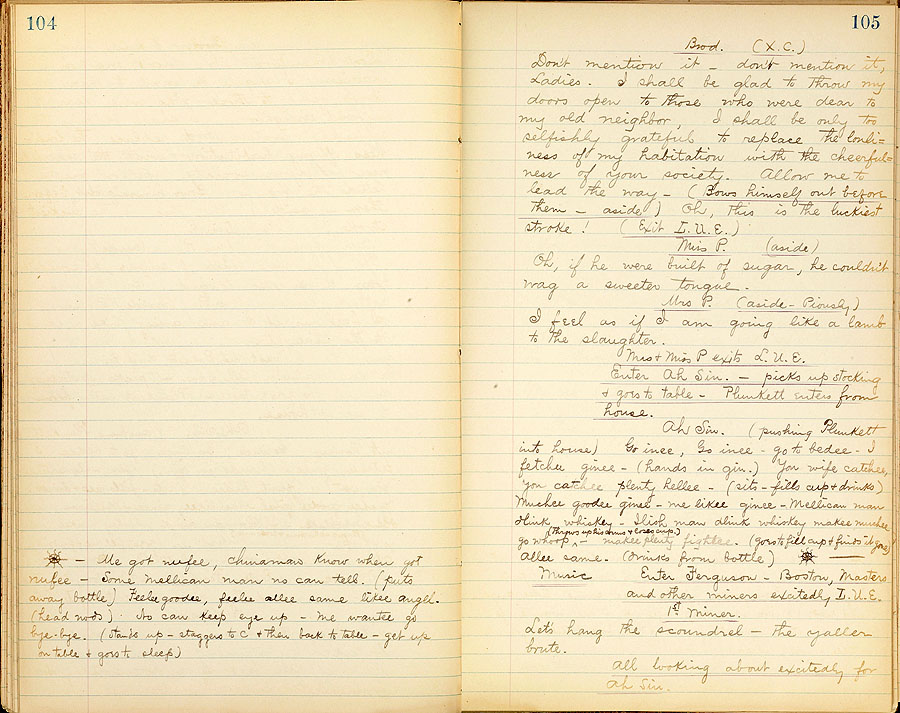 104
✵ — Me got nufee, chinaman know when got
nufee — Some Mellican man no can tell. (puts
away bottle) Feelee goodee, feelee allee same likee angel.
(head nods) No can keep eye up — me wantee go
bye-bye. (Stands up — staggers to C & then back to table — get up
on table & goes to sleep)
105
Brod. (X.C.)
Don't mention it — don't mention it,
Ladies. I shall be glad to throw my
doors open to those who were dear to
my old neighbor, I shall be only too
selfishly grateful to replace the lonli=
ness of my habitation with the cheerful=
ness of your society. Allow me to
lead the way — (Bows himself out before
them — aside) Oh, this is the luckiest
stroke! (Exit L.U.E.)
Miss P. (aside)
Oh, if he were built of sugar, he couldn't
wag a sweeter tongue.
Mrs P. (aside — Piously)
I feel as if I am going like a lamb
to the slaughter.
Mrs & Miss P exits L.U.E.
Enter Ah Sin. — picks up stocking
& goes to table — Plunkett enters from
house.
Ah Sin. (pushing Plunkett
into house) Go inee, Go inee — go to bedee — I
fetchee ginee — (hands in gin.) You wife catchee,
you catchee plenty hellee — (sits — fills cup & drinks)
Muchee goodee ginee — me likee ginee — Mellican man
dlink whiskey — Ilish man dlink whiskey makee muchee
(throws up his arms & loses cup.)
go whoop, — makee plenty fightee. (goes to fill cup & finds it gone)
Allee same. (drinks from bottle) ✵
Music Enter Ferguson — Boston, Masters
and other miners excitedly L.U.E.
1st Miner.
Let's hang the scoundrel — the yaller
brute.
All looking about excitedly for
Ah Sin.